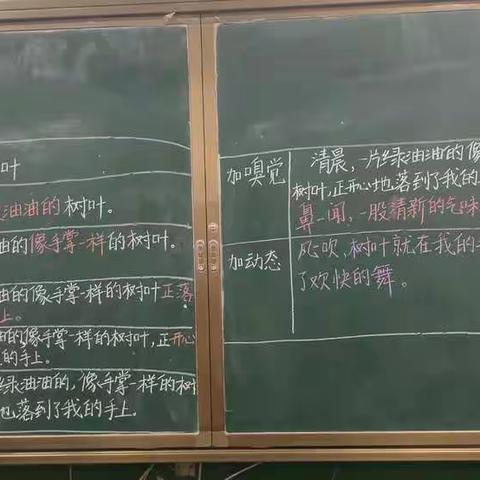 叶
油油的树叶。
油的像手掌一样的树叶。
油的像手掌一样的树叶正落
上。
油的像手掌一样的树叶,正开心
的手上。
绿油油的,像手掌一样的树
也落到了我的手上。
加嗅觉
清晨,一片绿油油的像
树叶,正开心地落到了我的
鼻一闻,一股清新的气味
加动态
风一吹,树叶就在我的
了欢快的舞。